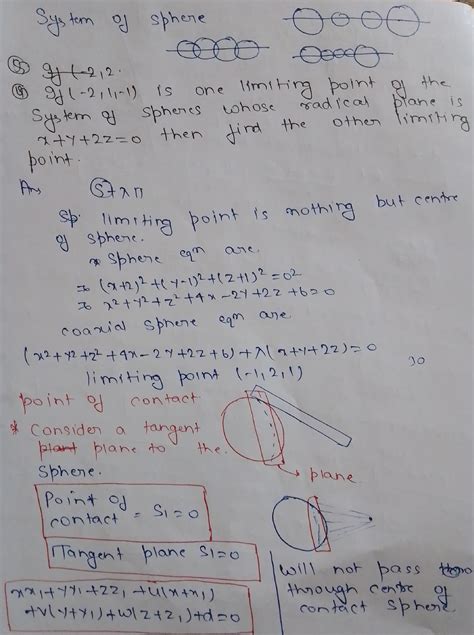 System of sphere
⑤ If (-2, 2.
④ If (-2, 1, -1) is one limiting point of the
system of spheres whose radical plane is
x+y+2z=0 then find the other limiting
point.
Ans S+λπ
Sp. limiting point is nothing but centre
of sphere.
Sphere eqn are.
⇒ (x+2)²+(y-1)²+(z+1)²=0²
⇒ x²+y²+z²+4x-2y+2z+6=0
coaxial sphere eqn are
(x²+y²+z²+4x-2y+2z+6)+λ(x+y+2z)=0
limiting point (-1, 2, 1)
30
point of contact
* Consider a tangent
plant plane to the
sphere.
→ plane
Point of
contact = S1=0
Tangent plane S1=0
xx1+yy1+zz1+u(x+x1)
+v(y+y1)+w(z+z1)+d=0
will not pass tho
through centre of
contact sphere.